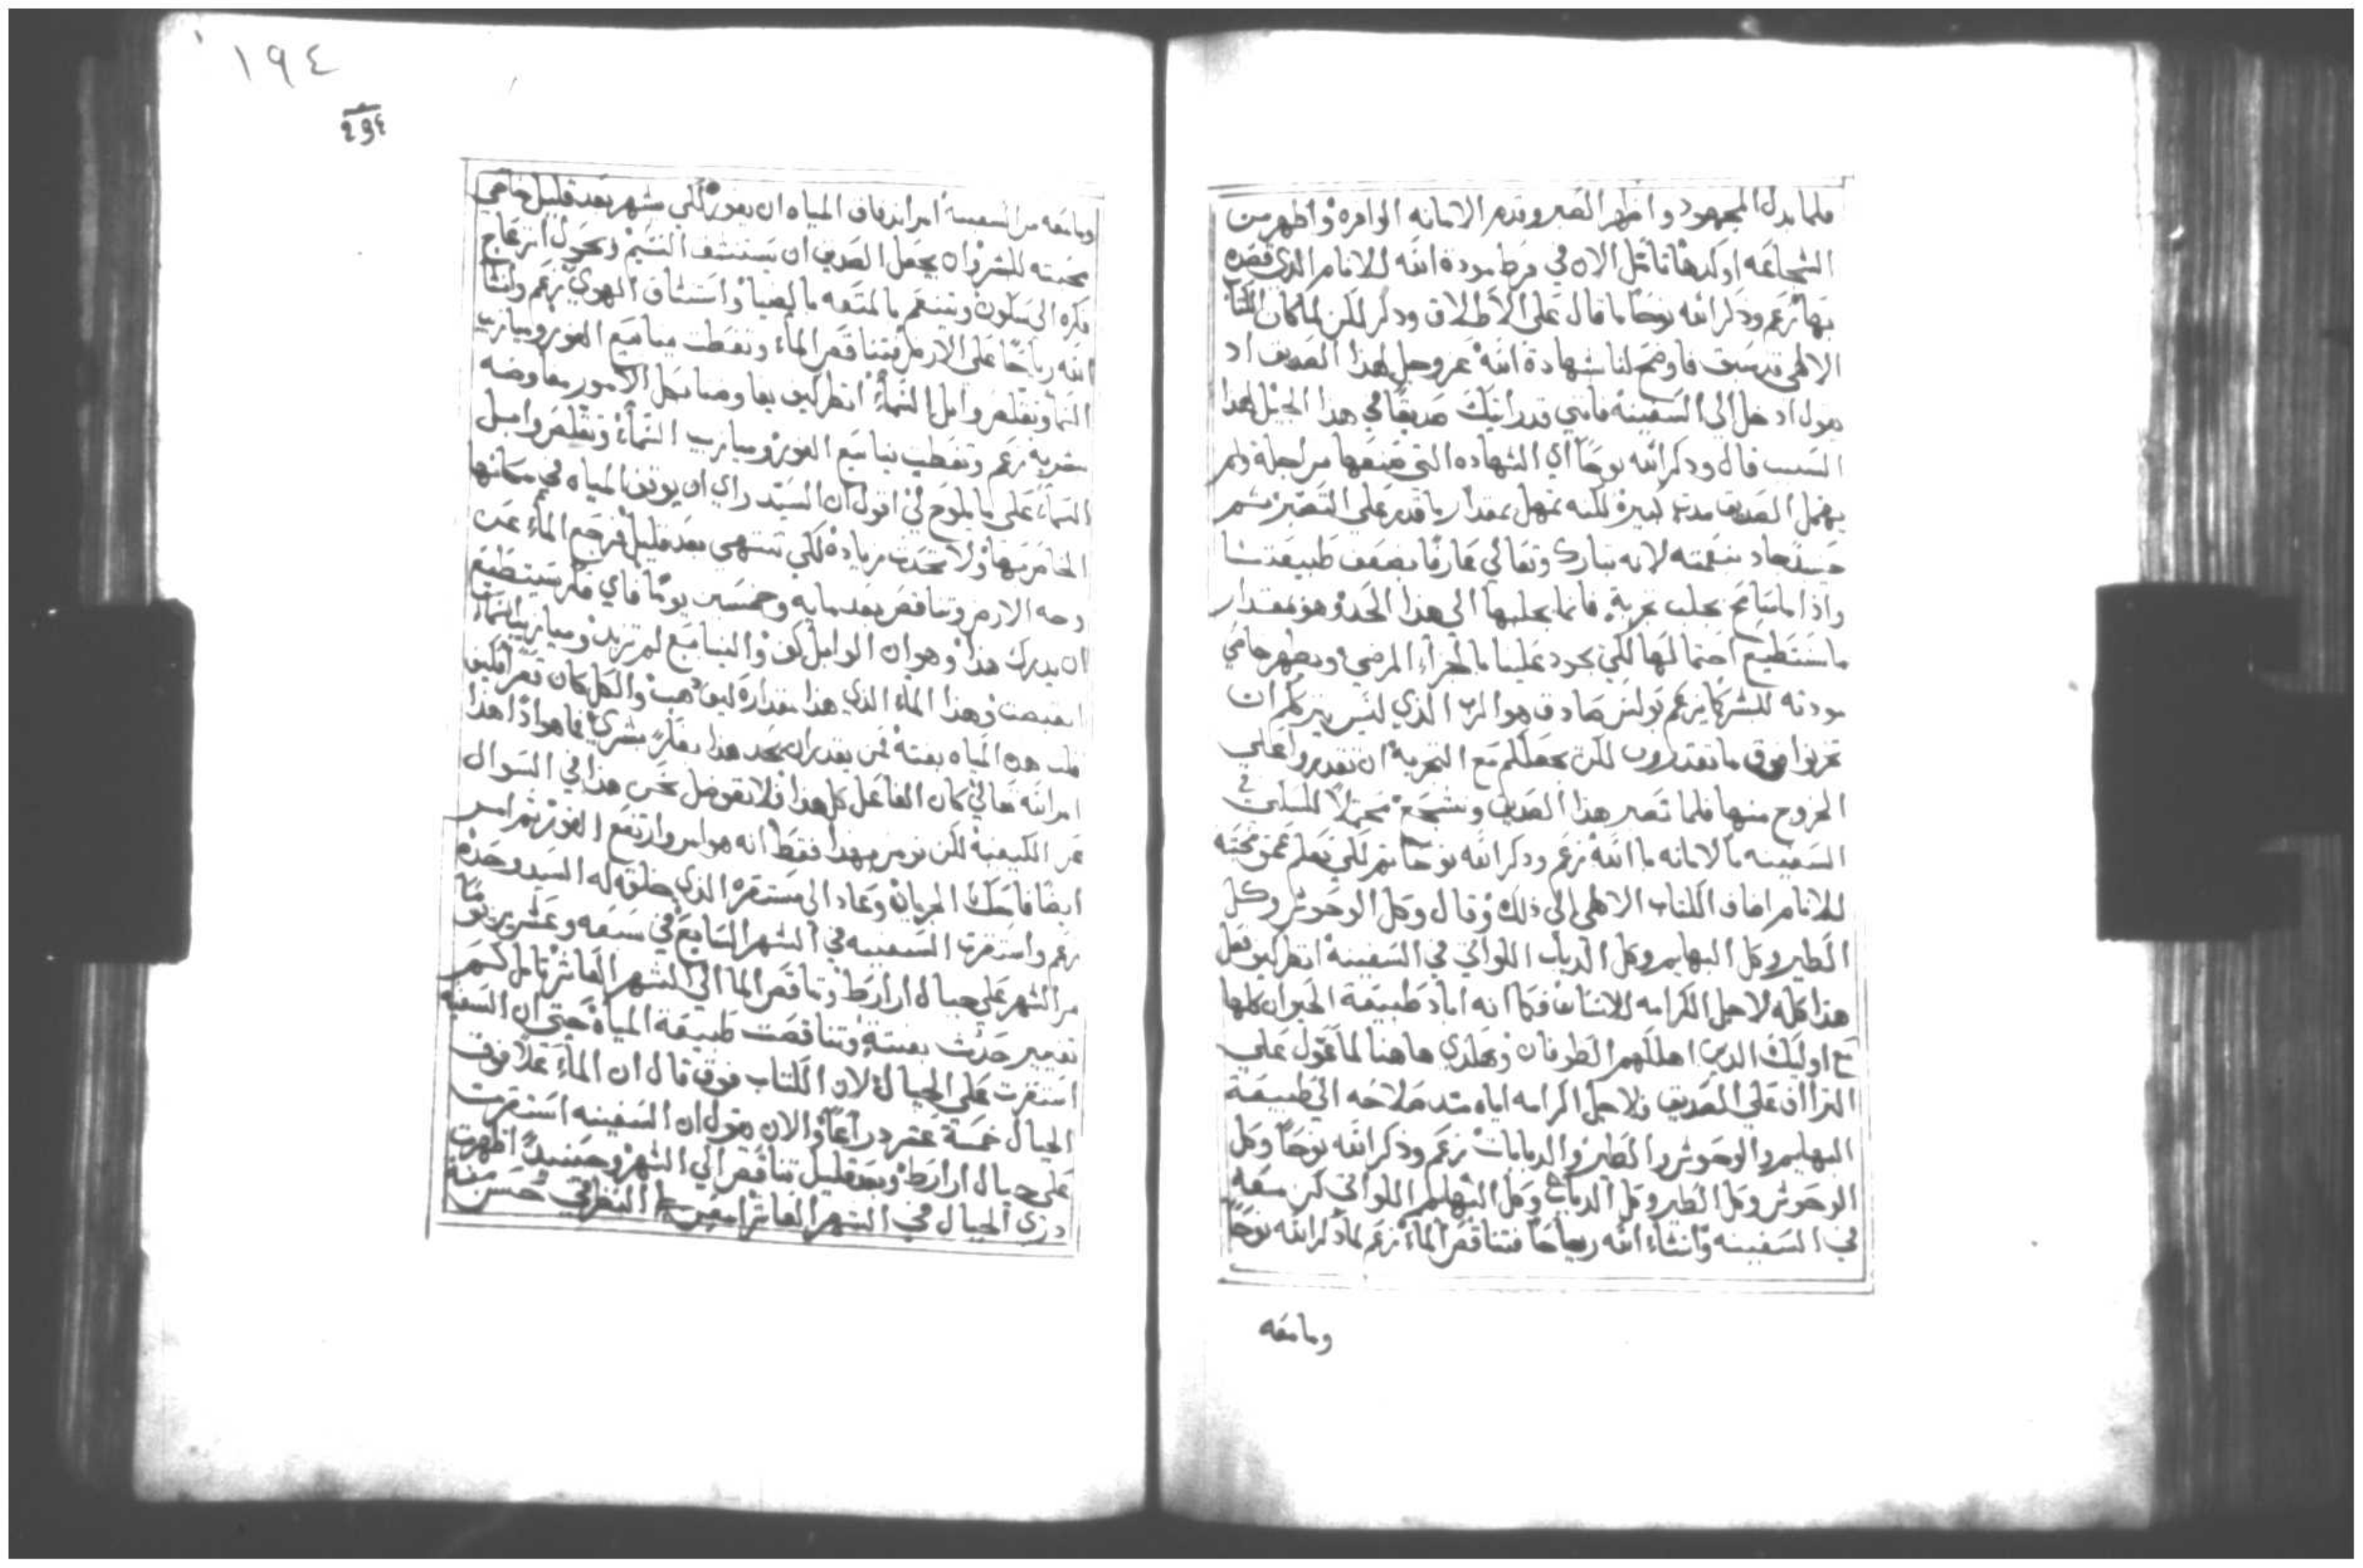 فلما بدل المجهود واظهر الصبر وقدم الامانه الوافره واظهر من
الشجاعه اوكدها تامل الان في فرط مودة الله للانام الذي قصده
بها زعم وذكر الله نوحا ما قال على الاطلاق وذكر لكن لما كان الكتاب
الالهي قد سبق فاوضح لنا شهادة الله عز وجل لهذا الصديق اذ
يقول ادخل الي السفينة فانني قد رايتك صديقا في هذا الجيل لهذا
السبب قال وذكر الله نوحا اي الشهاده التي صنعها من اجله ولم
يهمل الصديق مدة كبيرة لكنه تمهل بمقدار ما قدر على التصبر ثم
حينيذ جاد بنعمته لانه تبارك وتعالي عارفا بضعف طبيعتنا
واذا ما سامح بجلب تجربة فانما يجلبها الي هذا الحد وهو بمقدار
ما نستطيع احتمالها لكي يجود علينا بالجزاء المرضي ويظهر حامي
مودته للبشر كما يزعم بولس صادق هو الرب الذي ليس يترككم ان
تجربوا فوق ما تقدرون لكن يجعل لكم مع التجربة ان تقدروا على
الخروج منها فلما تصبر هذا الصديق وتشجع محتملا للسكني في
السفينه بالامانه بالله زعم وذكر الله نوحا ثم لكي تعلم عمق محبته
للانام اضاف الكتاب الالهي الي ذلك وقال وكل الوحوش وكل
الطير وكل البهايم وكل الدباب اللواتي في السفينة انظر كيف فعل
هذا كله لاجل اكرامه للانسان فكما انه اباد طبيعة الحيوان كلها
مع اوليك الدين اهلكهم الطوفان وهكذي هاهنا لما عول علي
التراف علي الصديق ولاجل اكرامه اياه مد صلاحه الي طبيعة
البهايم والوحوش والطير والدبابات زعم وذكر الله نوحا وكل
الوحوش وكل الطير وكل الدباب وكل البهايم اللواتي كن معه
في السفينه وانشاء الله رياحا فتناقص الماء زعم لما ذكر الله نوحا
وما معه
١٩٤
وما معه من السفينه امر اندفاق المياه ان يغور لكي يشهر بعد قليل حامي
محبته للبشر وان يجعل الصديق ان يستنشق النسيم ويحول انزعاج
فكره الي سكون ويتنعم بالمتعه بالضيا واستنشاق الهوي زعم وانشا
الله رياحا على الارض فتناقص الماء وتغطت ينابيع الغور وميازيب
السما وتقلص وابل السماء انظر كيف يفاوضنا بكل الامور مفاوضه
بشرية زعم وتغطت ينابيع الغور وميازيب السماء وتقلص وابل
السماء على ما يلوح لي اقول ان السيد راي ان يوقف المياه في مكانها
الخاص بها ولا تحدث زيادة لكي تنتهي بعد قليل فرجع الماء عن
وجه الارض وتناقص بعد مايه وخمسين يوما فاي فكر يستطيع
ان يدرك هذا وهو ان الوابل كف والينابيع لم تزيد وميازيب السماء
انقبضت وهذا الماء الذي هذا مقداره كيف ذهب والكل كان قعرا فكيف
قلت هذه المياه بغتة فمن يقدر ان يجد هذا بفكر بشري فما هو اذا هذا
امر الله تعالي كان الفاعل كل هذا فلا نفوض نحن هذا في السوال
عن الكيفية لكن نومن بهذا فقط انه هو امر وارتفع الغور ثم امر
ايضا فامسك الجريان وعاد الى مستقره الذي خلقه له السيد وحده
زعم واستقرت السفينه في الشهر السابع في سبعه وعشرين يوما
من الشهر على جبال اراراط وتناقص الما الي الشهر العاشر تامل كم
تغيير حدث بغتة وتناقصت طبيعة المياه حتي ان السفينة
استقرت على الجبال لان الكتاب فوق قال ان الماء علا فوق
الجبال خمسة عشر دراعا والان يقول ان السفينه استقرت
على جبال اراراط وبعد قليل تناقص الي الشهر وحينيذ اظهرت
ذري الجبال في الشهر العاشر امعن لي النظر في حسن